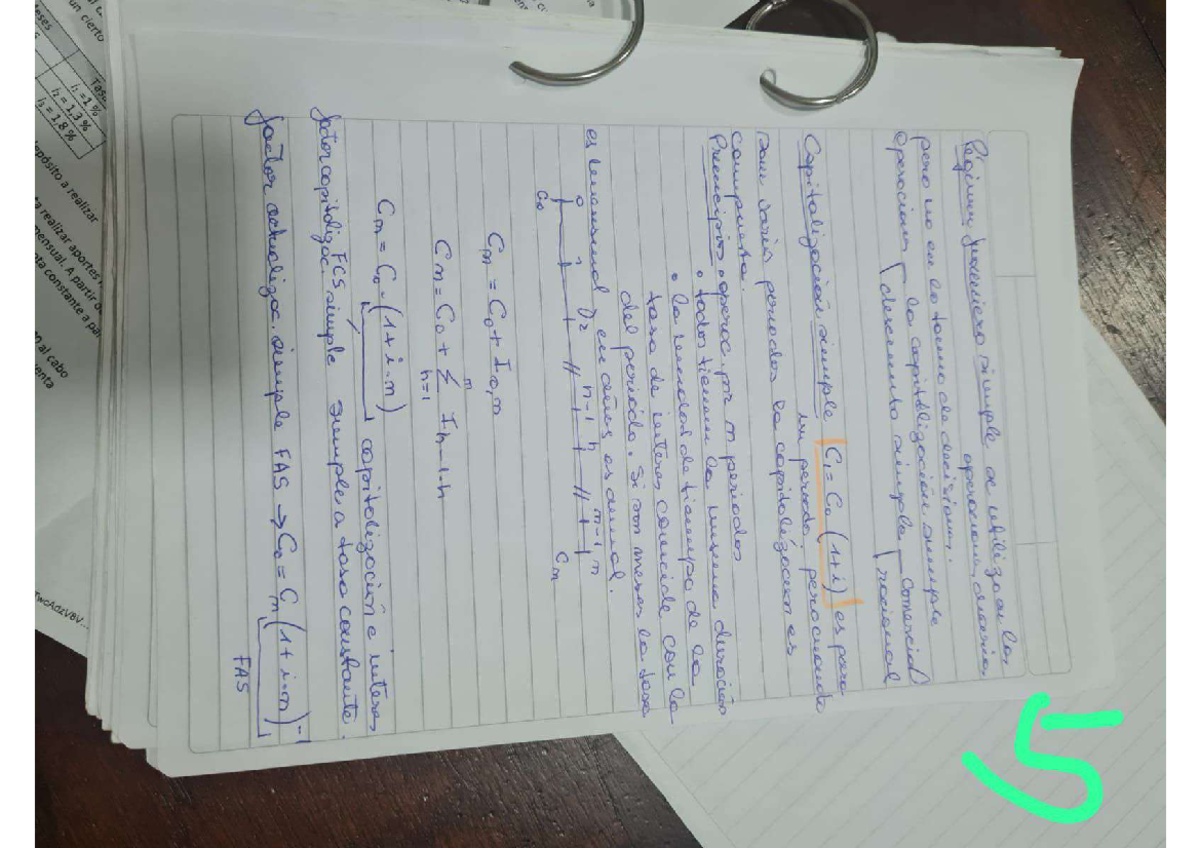 Régimen financiero simple se utiliza en las
operaciones diarias,
pero no en la toma de decisiones.
Operaciones la capitalización simple
descuento simple comercial
racional
Capitalización simple C₁ = C₀ (1+i) es para
un periodo, pero cuando
son varios periodos la capitalización es
compuesta.
Principios • operac. por n periodos
• todos tienen la misma duración
• la unidad de tiempo de la
tasa de interes coincide con la
del período. Si son meses la tasa
es mensual en años es anual.
0 1 2 h-1 h n-1 n
C₀ Cn
Cn = C₀ + I₀,n
Cn = C₀ + Σ I h-1,h
n
h=1
Cn = C₀ . (1+i.n) capitalización e interes
FCS
fator capitalizac. simple simple a tasa constante.
factor actualizac. simple FAS → C₀ = Cn (1+i.n)⁻¹
FAS
5
un cierto
Tasa
i₁ = 1 %
i₂ = 1,3 %
i₃ = 1,8 %
depósito a realizar
realizar aportes
mensual. A partir
constante a
al cabo
TwcAdzV8V...